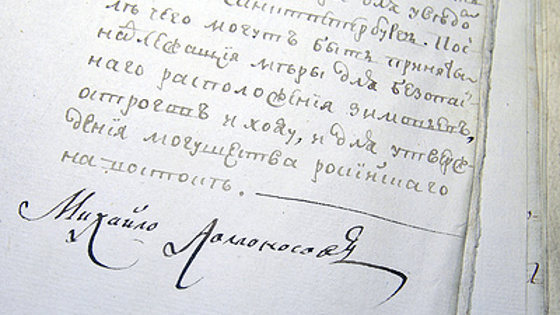 Санктпетербурга. Пос
лѣ чего могутъ быть приняты
надлежащія мѣры для безопас
наго расположенія зимовья,
остроговъ и ходу, и для утверж
денія могущества россійскаго
на востокѣ.
Михайло Ломоносовъ